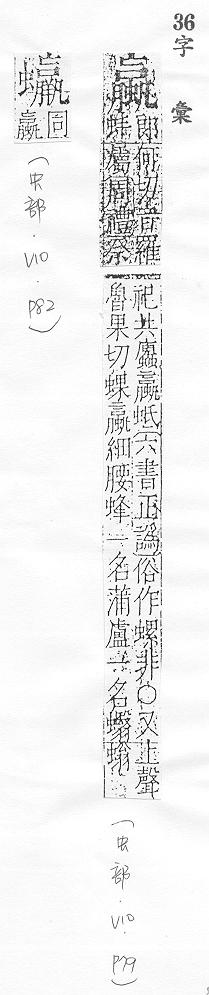 36
字彙
蠃
郎何切音羅蚌屬周禮祭
祀共蠯蠃蚳六書正譌俗作螺非○又上聲
魯果切蜾蠃細腰蜂一名蒲盧一名蠮螉
(虫部.V10.P79)
蠃
同蠃
(虫部.V10.P82)